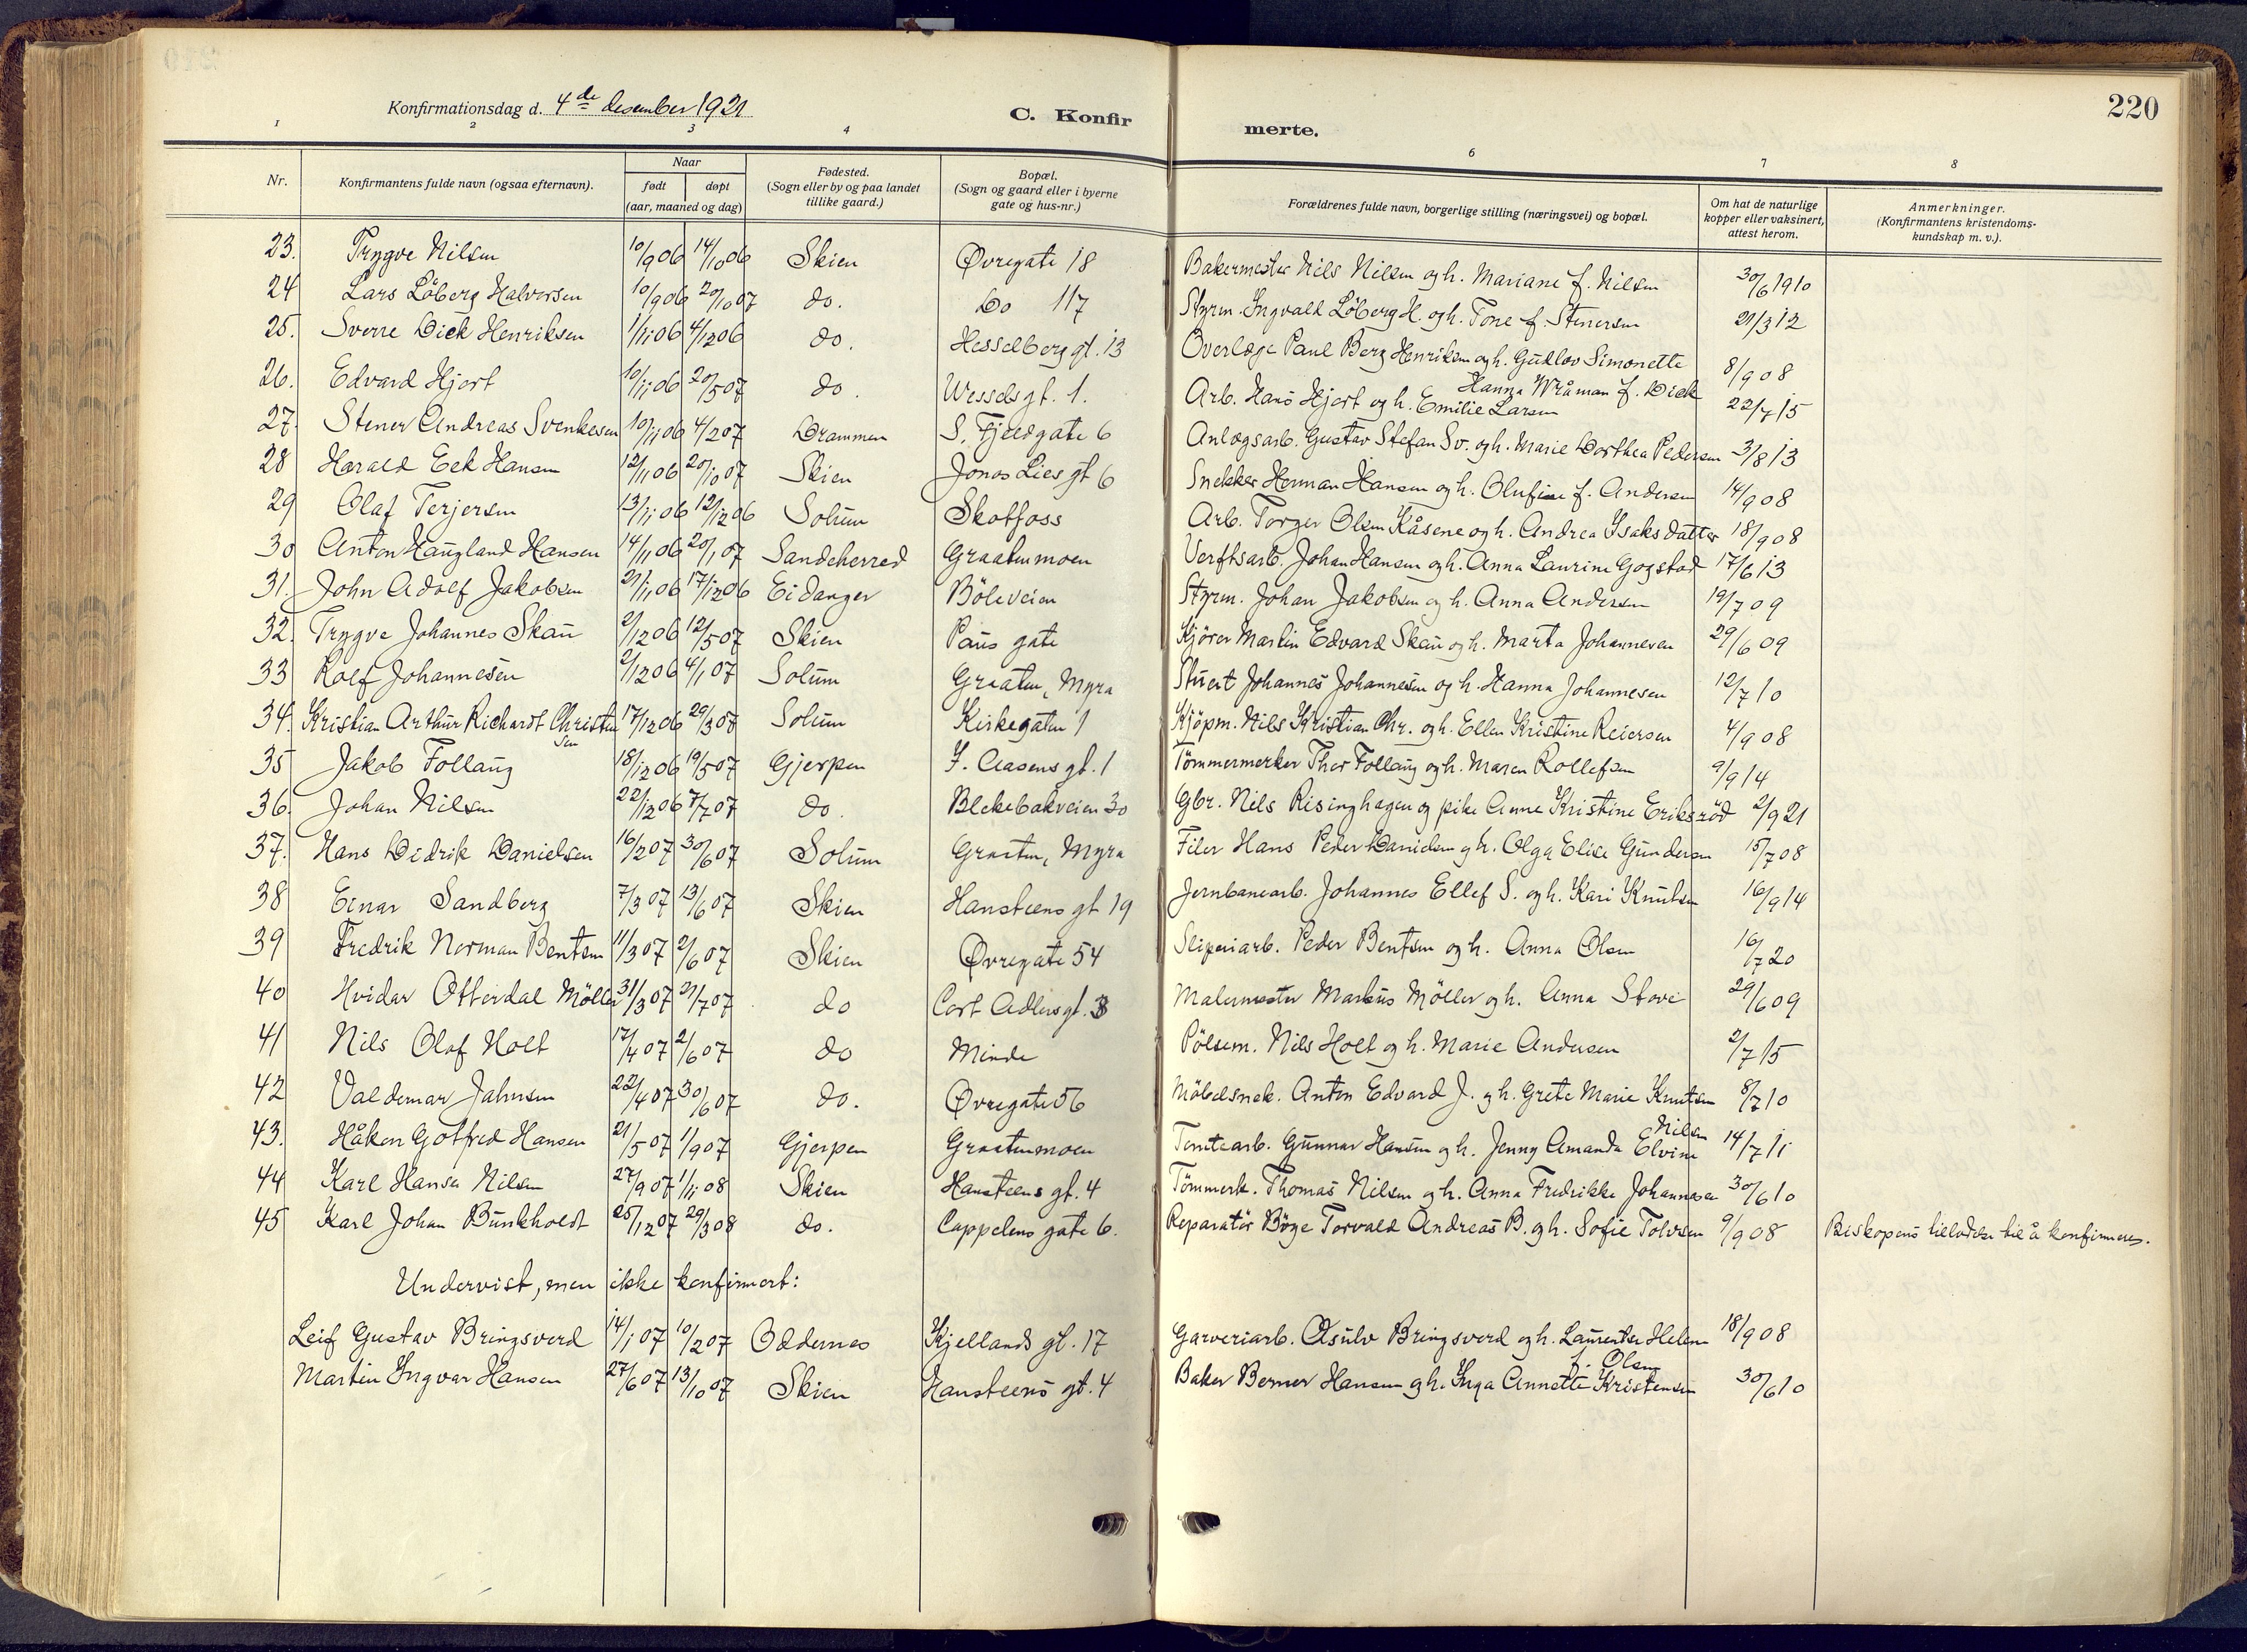 220
Konfirmationsdag d. 4de desember 1921
C. Konfirmerte.
1 2 3 4 6 7 8
Nr. | Konfirmantens fulde navn (ogsaa efternavn). | Naar født døpt (aar, maaned og dag) | Fødested. (Sogn eller by og paa landet tillike gaard.) | Bopæl. (Sogn og gaard eller i byerne gate og hus-nr.) | Forældrenes fulde navn, borgerlige stilling (næringsvei) og bopæl. | Om hat de naturlige kopper eller vaksinert, attest herom. | Anmerkninger. (Konfirmantens kristendoms-kundskap m. v.).
23. Trygve Nilsen 10/9 06 14/10 06 Skien Øvregate 18 Bakermester Nils Nilsen og h. Mariane f. Nilsen 30/6 1910
24 Lars Löberg Halvorsen 10/9 06 20/10 07 do. Do 117 Styrm. Ingvald Löberg H. og h. Tone f. Stenersen 21/3 12
25. Sverre Dick Henriksen 1/11 06 4/12 06 do. Hesselberg gt. 13 Overlæge Paul Berg Henriksen og h. Gudlov Simonette Hanna Wråman f. Dick 8/9 08
26. Edvard Hjort 10/11 06 20/5 07 do. Wessels gt. 1. Arb. Hans Hjort og h. Emilie Larsen 22/7 15
27. Stener Andreas Svenkesen 10/11 06 4/2 07 Drammen S. Fjeldgate 6 Anlægsarb. Gustav Stefan Sv. og h. Marie Dorthea Pedersen 3/8 13
28 Harald Eek Hansen 12/11 06 20/10 07 Skien Jonas Lies gt 6 Snekker Herman Hansen og h. Olufine f. Andersen 14/9 08
29 Olaf Terjersen 13/11 06 12/12 06 Solum Skotfoss Arb. Torger Olsen Kåsene og h. Andrea Isaksdatter 18/9 08
30 Anton Haugland Hansen 14/11 06 20/1 07 Sandeherred Graatenmoen Verftsarb. Johan Hansen og h. Anna Laurine Gogstad 17/6 13
31. John Adolf Jakobsen 21/11 06 17/12 06 Eidanger Böleveien Styrm. Johan Jakobsen og h. Anna Andersen 19/7 09
32. Trygve Johannes Skau 2/12 06 12/5 07 Skien Paus gate Kjörer Martin Edvard Skau og h. Marta Johannesen 29/6 09
33 Rolf Johannesen 2/12 06 4/1 07 Solum Graaten, Myra Stuert Johannes Johannesen og h. Hanna Johannesen 12/7 10
34. Kristian Arthur Richardt Christensen 17/12 06 29/3 08 Solum Kirkegaten 1 Kjöpm. Nils Kristian Chr. og h. Ellen Kristine Reiersen 4/9 08
35 Jakob Follaug 18/12 06 19/5 07 Gjerpen I. Aasens gt. 1 Tömmermerker Thor Follaug og h. Maren Rollefsen 9/9 14
36. Johan Nilsen 22/12 06 7/7 07 do. Blekebakveien 30 Gbr. Nils Risinghagen og pike Anne Kristine Eriksröd 2/9 21
37. Hans Didrik Danielsen 16/2 07 30/6 07 Solum Graaten, Myra Filer Hans Peder Danielsen og h. Olga Elise Gundersen 15/7 08
38 Einar Sandberg 7/3 07 13/6 07 Skien Hansteens gt 19 Jernbanearb. Johannes Ellef S. og h. Kari Knutsen 16/9 14
39 Fredrik Norman Bentsen 11/3 07 2/6 07 Skien Øvregate 54 Sliperiarb. Peder Bentsen og h. Anna Olsen 16/7 20
40 Hvidar Otterdal Möller 31/3 07 21/7 07 do Cort Adlersgt. 3 Malermester Markus Möller og h. Anna Stavi 29/6 09
41 Nils Olaf Holt 17/4 07 2/6 07 do Minde Pölsem. Nils Holt og h. Marie Andersen 2/7 15
42 Valdemar Jahnsen 22/4 07 30/6 07 do. Øvregate 56 Möbelsnek. Anton Edvard J. og h. Grete Marie Knutsen 8/7 10
43. Håken Gotfred Hansen 21/5 07 1/9 07 Gjerpen Graatenmoen Tomtearb. Gunnar Hansen og h. Jenny Amanda Elvine Nilsen 14/7 11
44 Karl Hansen Nilsen 27/9 07 1/11 08 Skien Hansteens gt. 4 Tömmerk. Thomas Nilsen og h. Anna Fredrikke Johannesen 30/6 10
45 Karl Johan Bunkholdt 25/12 07 29/3 08 do. Cappelens gate 6. Reparatör Böge Torvald Andreas B. og h. Sofie Tolvsen 9/9 08 Biskopens tilladelse til å konfirmeres.
Undervist, men ikke konfirmert:
Leif Gustav Bringsverd 14/1 07 10/2 07 Oddernes Kjellands gt. 17 Garveriarb. Asulv Bringsverd og h. Laurentse Helene f. Olsen 18/9 08
Martin Ingvar Hansen 27/6 07 13/10 07 Skien Hansteens gt. 4 Baker Berner Hansen og h. Inga Annette Kristensen 30/6 10